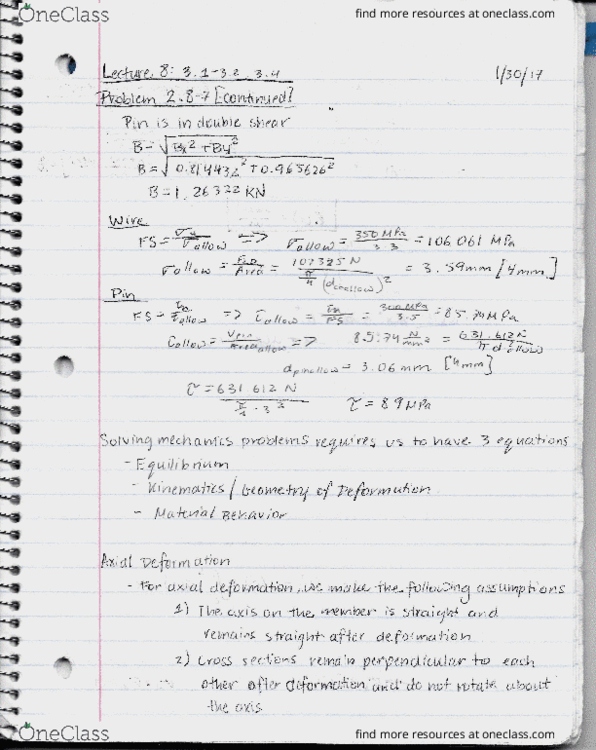 OneClass
find more resources at oneclass.com
Lecture 8: 3.1-3.2, 3.4
1/30/17
Problem 2.8-7 [continued]
Pin is in double shear
B = √Bx² + By²
B = √0.814432² + 0.965626²
B = 1.26322 KN
Wire
FS = σu/σallow => σallow = 350 MPa/3.3 = 106.061 MPa
σallow = /Area = N/π/4 (d)² = 3.59mm [4mm]
Pin
FS = /τallow => τallow = /FS = 300 MPa/3.5 = 85.71 MPa
τallow = Vpin/Area allow => N/mm² = 631.612 N/
= 3.06 mm [4mm]
τ = 631.612 N/π/4 · 3²
τ = 89 MPa
Solving mechanics problems requires us to have 3 equations
- Equilibrium
- Kinematics / Geometry of Deformation
- Material Behavior
Axial Deformation
- For axial deformation, we make the following assumptions
1) The axis on the member is straight and
remains straight after deformation
2) Cross sections remain perpendicular to each
other after deformation and do not rotate about
the axis
OneClass
find more resources at oneclass.com